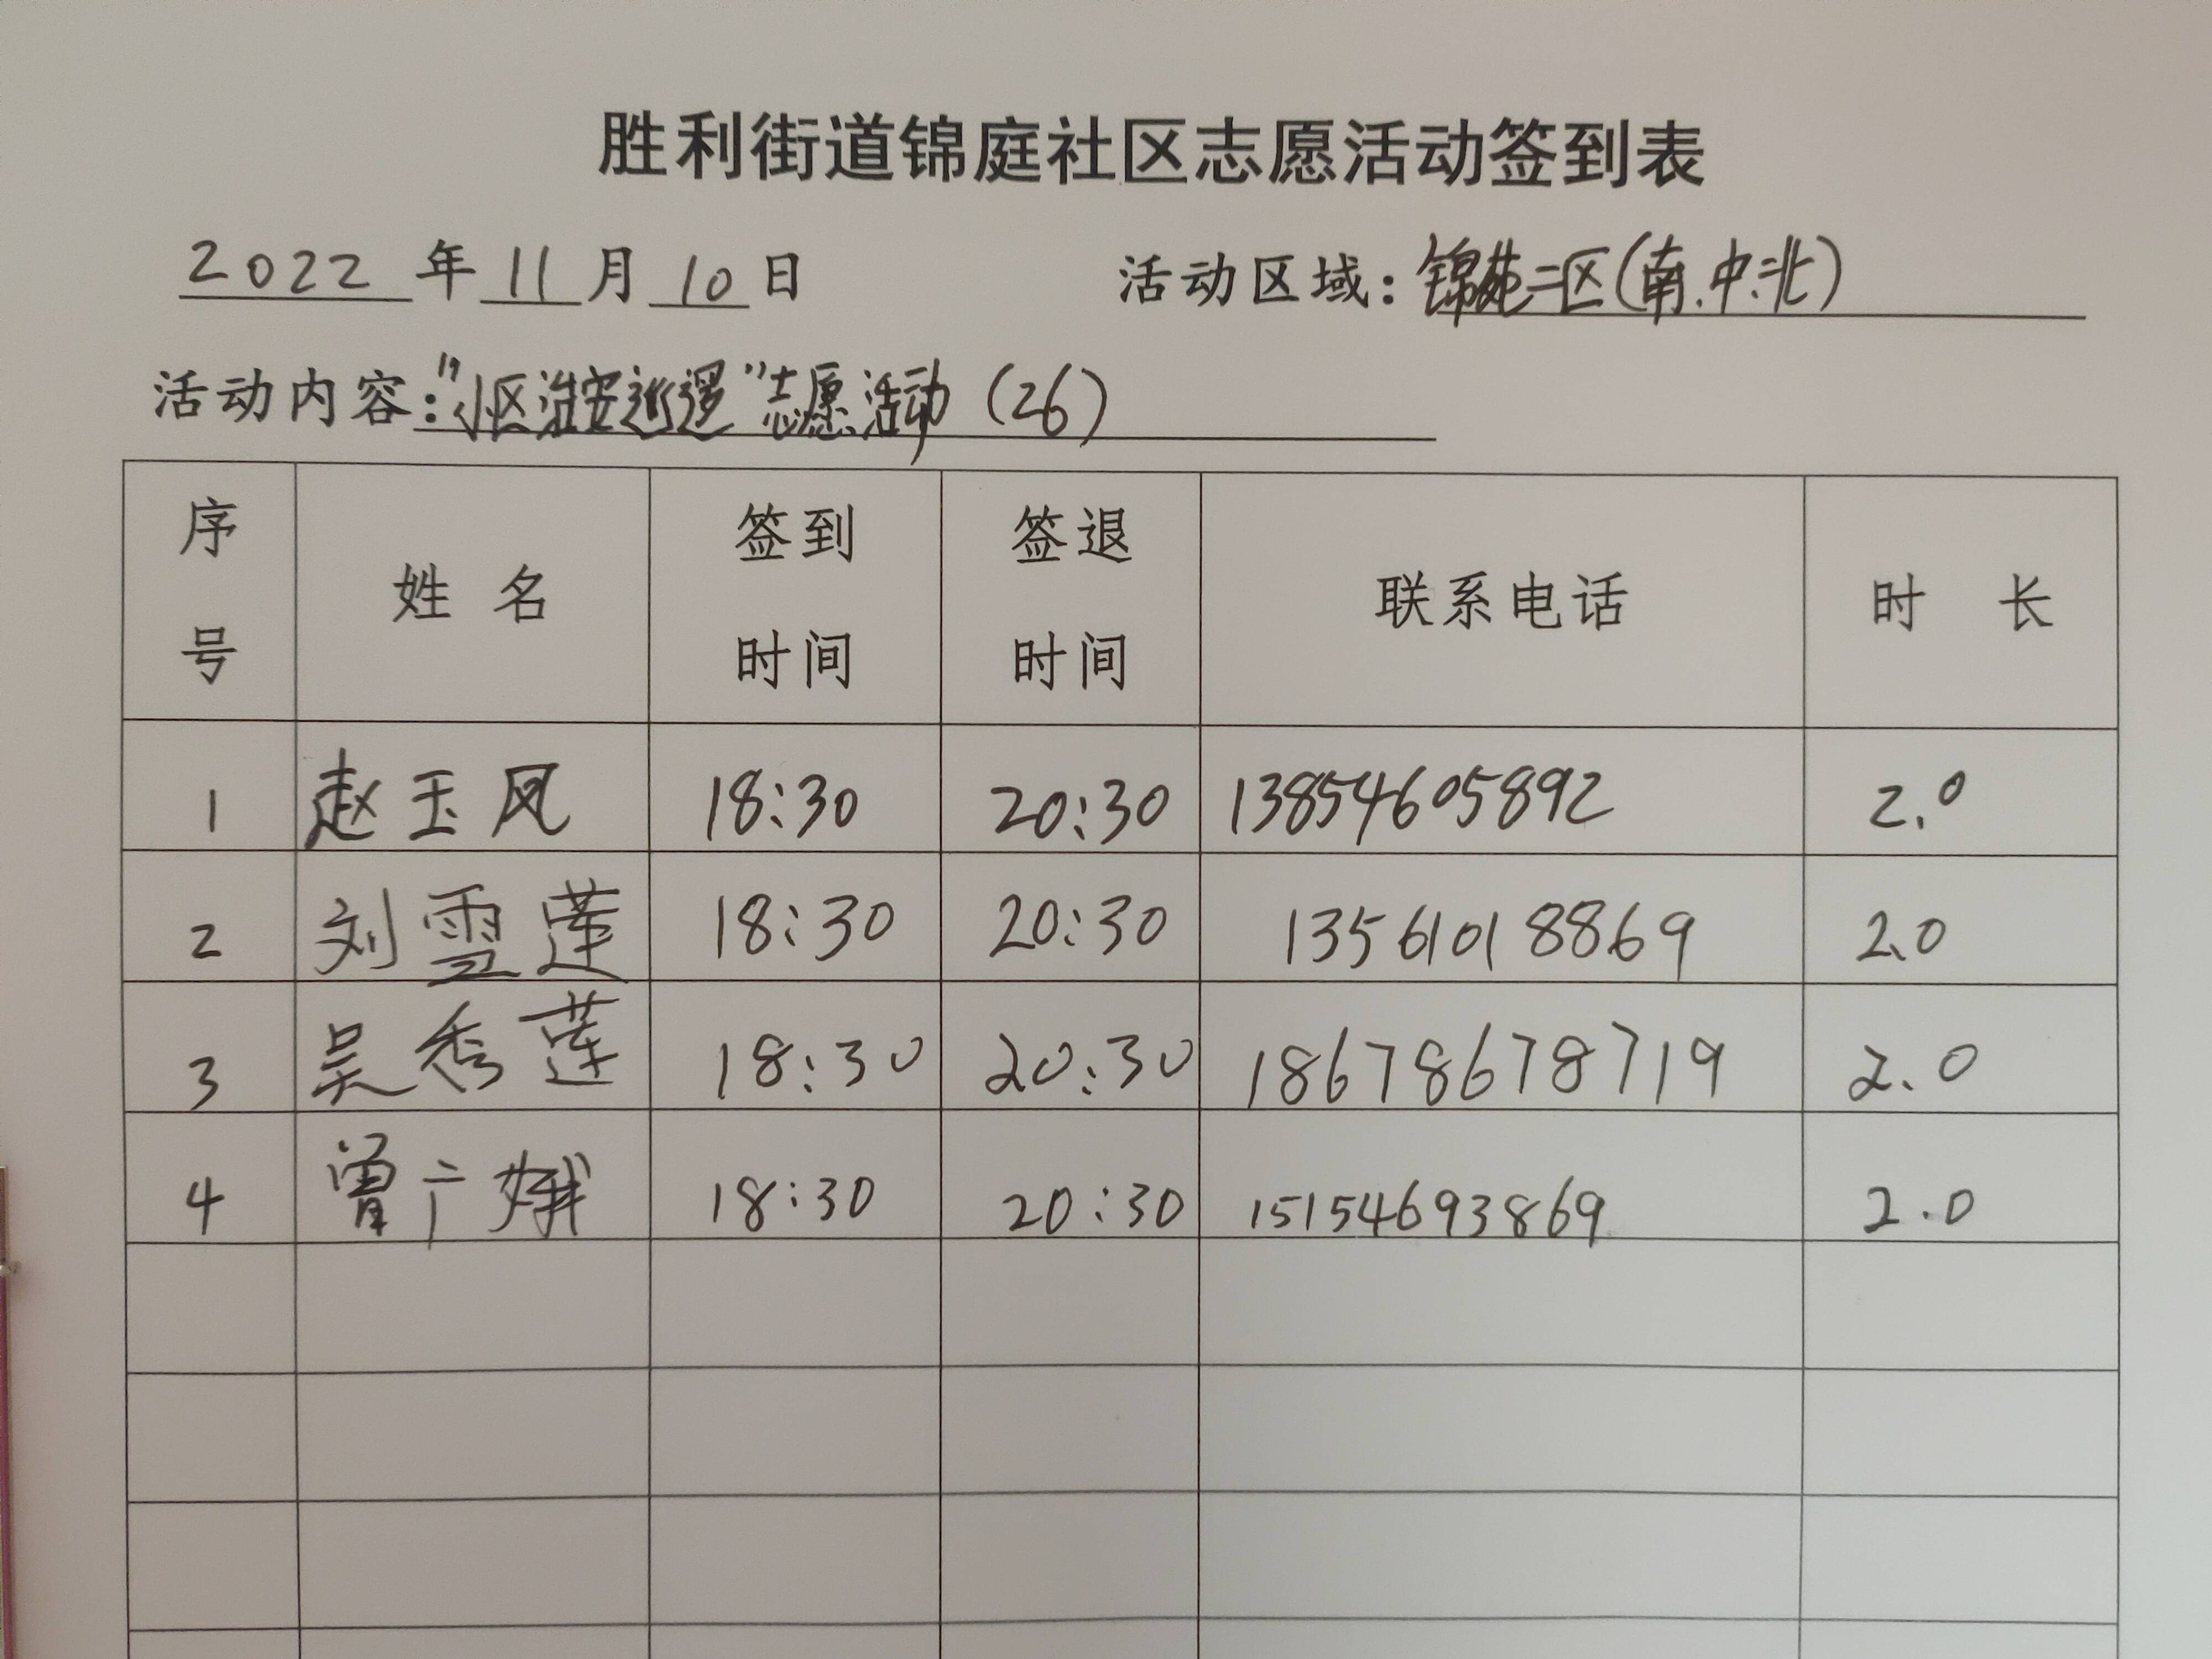 胜利街道锦庭社区志愿活动签到表
2022年11月10日 活动区域：锦苑二区(南.中.北)
活动内容："小区治安巡逻"志愿活动(26)
序号 姓名 签到时间 签退时间 联系电话 时长
1 赵玉凤 18:30 20:30 13854605892 2.0
2 刘雪莲 18:30 20:30 13561018869 2.0
3 吴秀莲 18:30 20:30 18678678719 2.0
4 曾广娥 18:30 20:30 15154693869 2.0